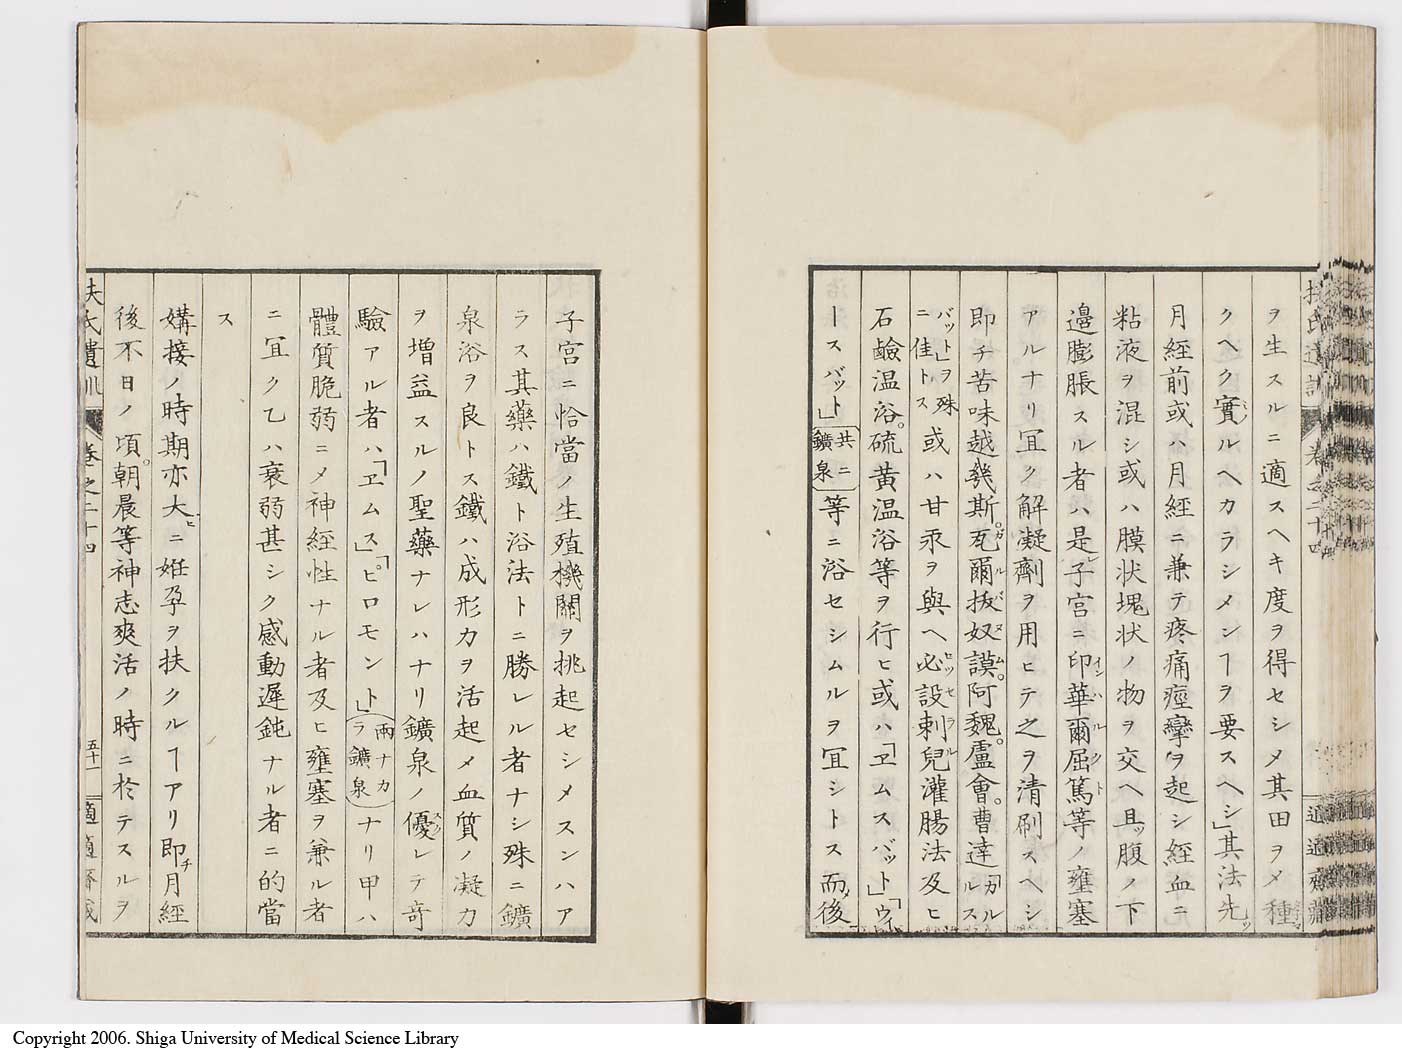 ヲ生スルニ適スヘキ度ヲ得セシメ其田ヲメ種
クヘク實ルヘカラシメンヿヲ要スヘシ」其法先
月経前或ハ月経ニ兼テ疼痛痙攣ヲ起シ経血ニ
粘液ヲ混シ或ハ膜状塊状ノ物ヲ交ヘ且腹ノ下
邉膨脹スル者ハ是子宮ニ印華爾屈篤等ノ壅塞
アルナリ冝ク解凝劑ヲ用ヒテ之ヲ清刷スヘシ
即チ苦味越幾斯。瓦爾抜奴謨。阿魏。盧會。曹達「カルルス
バット」ヲ殊ニ佳トス或ハ甘汞ヲ與ヘ必設剌兒灌腸法及ヒ
石鹸温浴。硫黄温浴等ヲ行ヒ或ハ「ヱムスバット」「ウィ
ースバット」共ニ鑛泉等ニ浴セシムルヲ冝シトス而後
扶氏遺訓 卷之二十四 適適齋藏
子宮ニ恰當ノ生殖機關ヲ挑起セシメスンハア
ラス其藥ハ鐵ト浴法トニ勝レル者ナシ殊ニ鑛
泉浴ヲ良トス鐵ハ成形力ヲ活起メ血質ノ凝力
ヲ増益スルノ聖藥ナレハナリ鑛泉ノ優レテ竒
驗アル者ハ「ヱムス」「ピロモント」両ナカラ鑛泉ナリ甲ハ
體質脆弱ニメ神経性ナル者及ヒ壅塞ヲ兼ル者
ニ冝ク乙ハ衰弱甚シク感動遲鈍ナル者ニ的當
ス
媾接ノ時期亦大ニ姙孕ヲ扶クルヿアリ即月経
後不日ノ頃。朝晨等神志爽活ノ時ニ於テスルヲ
扶氏遺訓 卷之二十四 五十一 適適齋藏
Copyright 2006. Shiga University of Medical Science Library